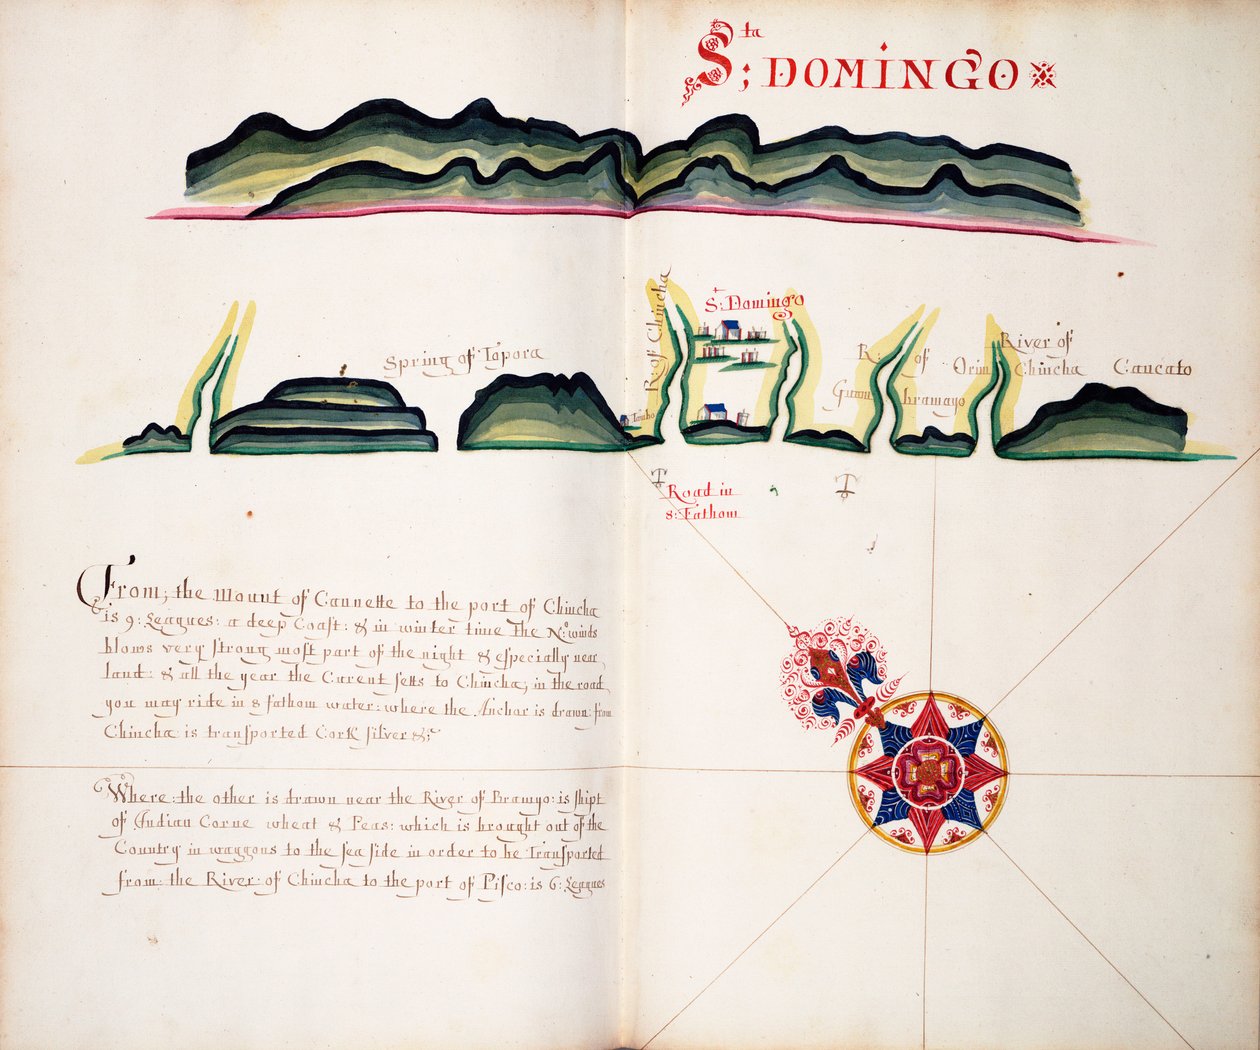 Sta; DOMINGO
Spring of Topora
R: of Chincha
St Domingo
Tambo
R: of
Guambramayo
River of
Orin Chincha
Caucato
Road in
8: Fathom
From; the mount of Cannette to the port of Chincha
is 9: Leagues: a deep Coast: & in winter time the No: winds
blows very strong most part of the night & especially near
land: & all the year the Curent setts to Chincha; in the road
you may ride in 8 fathom water: where the Anchor is drawn: from
Chincha: is transported Cork silver &c
Where: the other is drawn near the River of Bramyo: is shipt
of Indian Corne wheat & Peas: which is brought out of the
Country in waggons to the sea side in order to be Transported
from: the River: of Chincha to the port of Pisco: is 6: Leagues